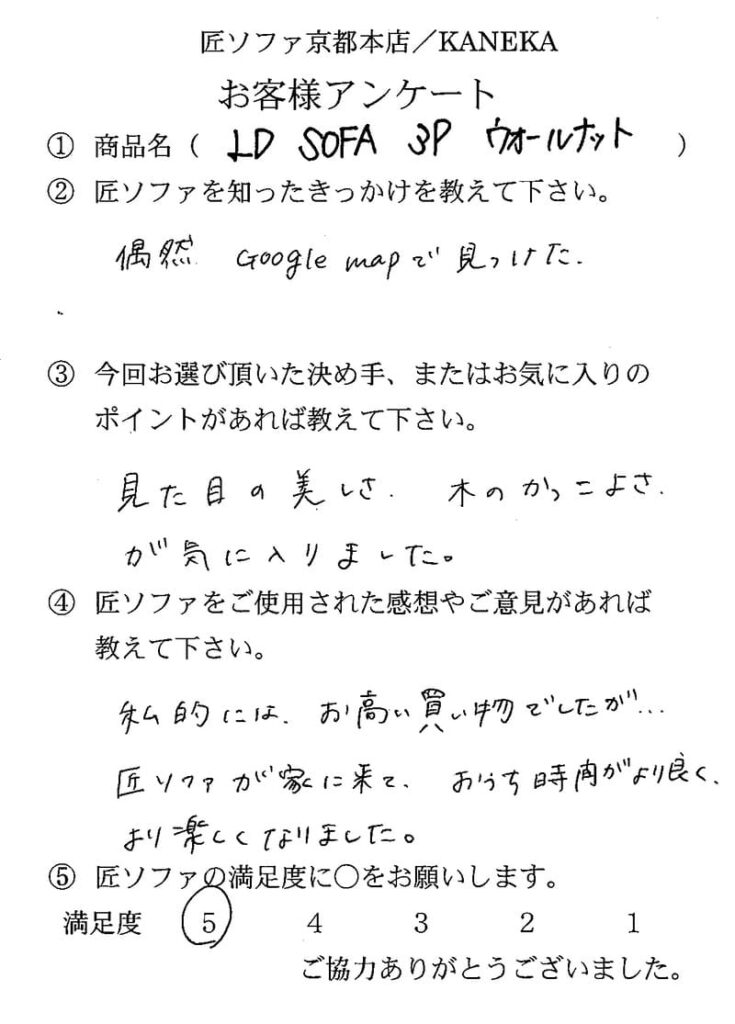 匠ソファ京都本店／KANEKA
お客様アンケート
① 商品名（ LD SOFA 3P ウォールナット ）
② 匠ソファを知ったきっかけを教えて下さい。
偶然 Google mapで見つけた.
③ 今回お選び頂いた決め手、またはお気に入りの
ポイントがあれば教えて下さい。
見た目の美しさ. 木のかっこよさ.
が気に入りました。
④ 匠ソファをご使用された感想やご意見があれば
教えて下さい。
私的には、お高い買い物でしたが...
匠ソファが家に来て、おうち時間がより良く、
より楽しくなりました。
⑤ 匠ソファの満足度に○をお願いします。
満足度 5 4 3 2 1
ご協力ありがとうございました。